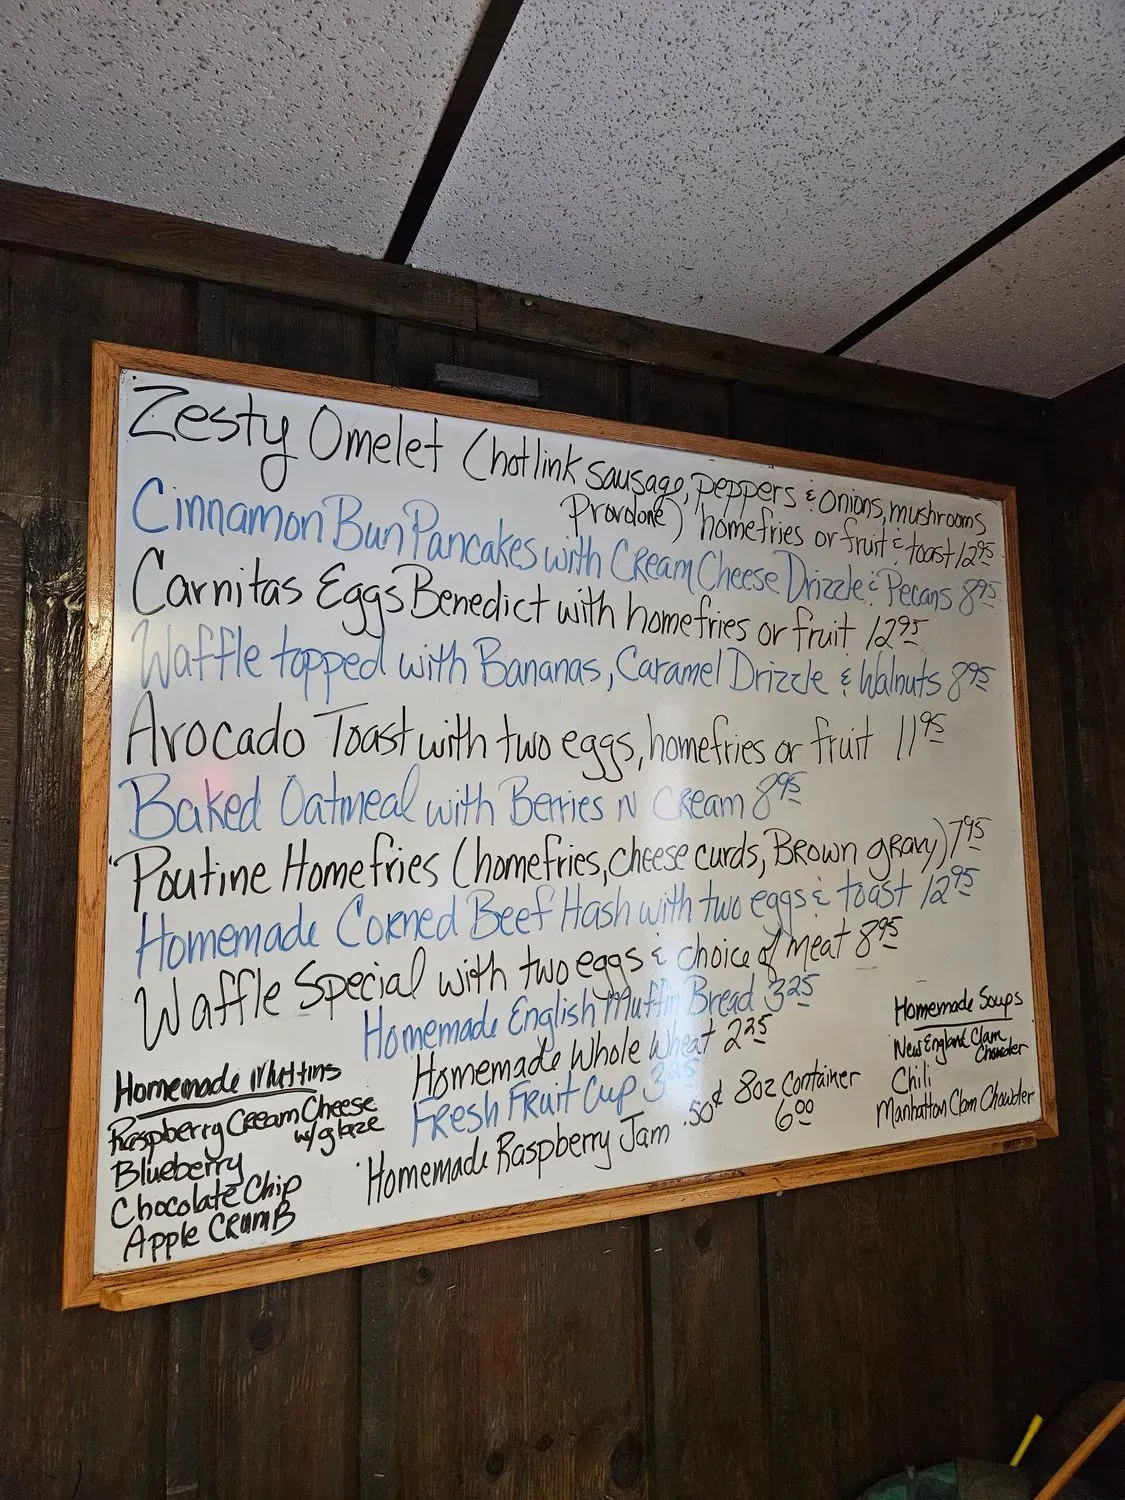 Zesty Omelet (hotlink sausage, peppers & onions, mushrooms,
Provolone) homefries or fruit & toast 12.95
Cinnamon Bun Pancakes with Cream Cheese Drizzle & Pecans 8.95
Carnitas Eggs Benedict with homefries or fruit 12.95
Waffle topped with Bananas, Caramel Drizzle & Walnuts 8.95
Avocado Toast with two eggs, homefries or fruit 11.95
Baked Oatmeal with Berries N Cream 8.95
Poutine Homefries (homefries, cheese curds, Brown gravy) 7.95
Homemade Corned Beef Hash with two eggs & toast 12.95
Waffle Special with two eggs & choice of meat 8.95
Homemade English Muffin Bread 3.25
Homemade Whole Wheat 2.25
Fresh Fruit Cup 3.25
Homemade Raspberry Jam .50¢ 8oz container
6.00
Homemade Muffins
Raspberry Cream Cheese
w/glaze
Blueberry
Chocolate Chip
Apple CRumB
Homemade Soups
New England Clam
Chowder
Chili
Manhattan Clam Chowder